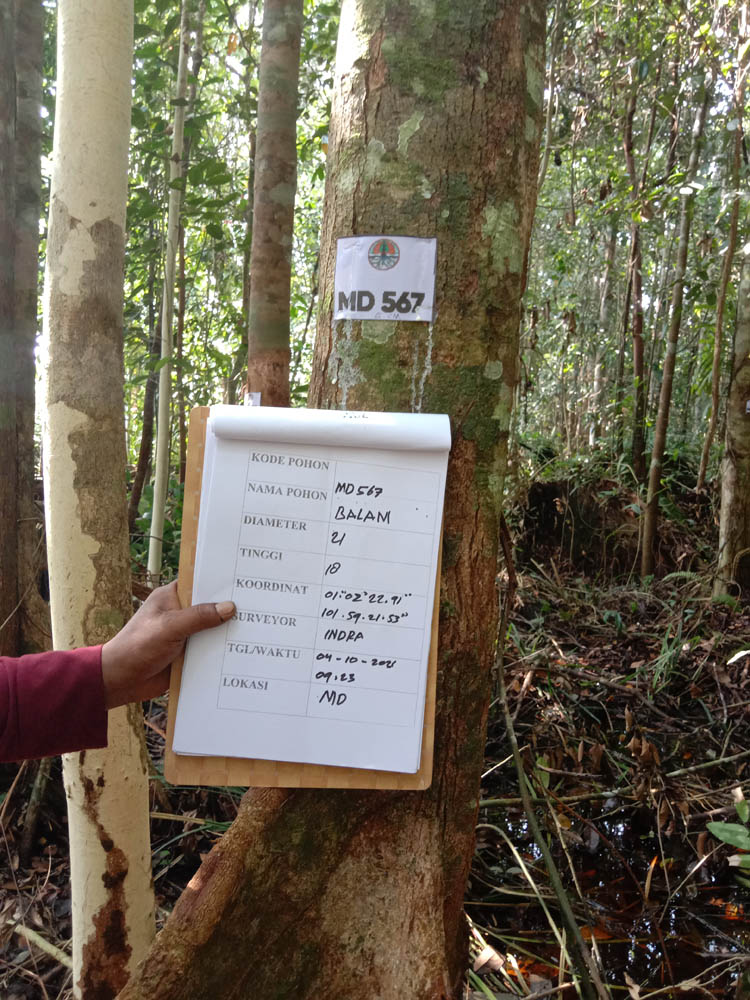 MD 567
KODE POHON
NAMA POHON MD 567
DIAMETER BALAM
21
TINGGI
18
KOORDINAT 01°02'22.91"
101.59.21.53"
SURVEYOR INDRA
TGL/WAKTU 04-10-2021
09.23
LOKASI MD